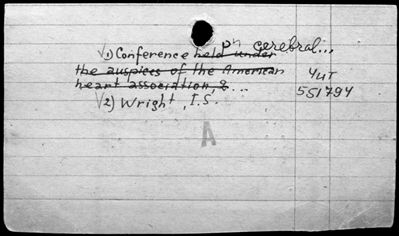 √1) Conference held under on cerebral...
the auspices of the American
heart association, & ...
√2) Wright, I.S.
YUT
551794
A